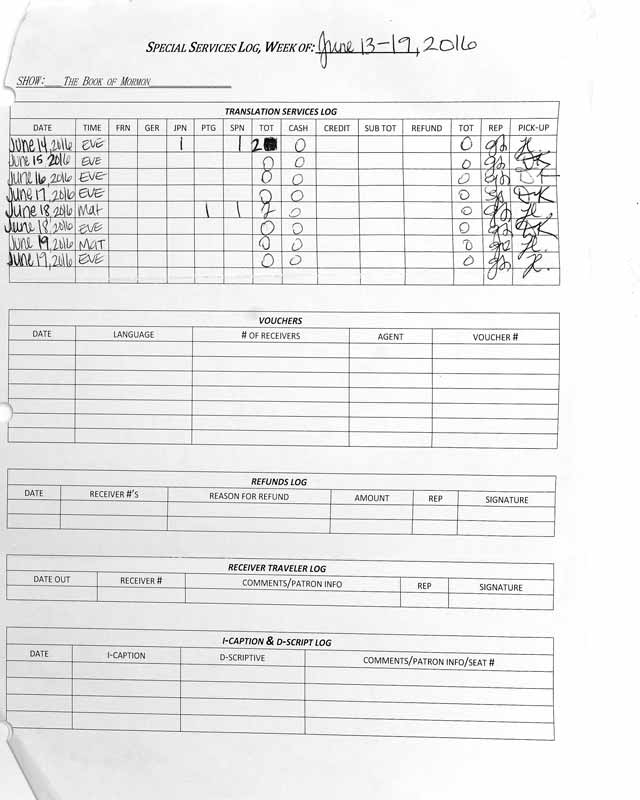 SPECIAL SERVICES LOG, WEEK OF: June 13-19, 2016
SHOW: THE BOOK OF MORMON
TRANSLATION SERVICES LOG
DATE TIME FRN GER JPN PTG SPN TOT CASH CREDIT SUB TOT REFUND TOT REP PICK-UP
June 14, 2016 EVE 1 1 2 0 0
June 15 2016 EVE 0 0 0 DK
June 16, 2016 EVE 0 0 0 DK
June 17, 2016 EVE 0 0 0 DK
June 18, 2016 Mat 1 1 2 0 0
June 18, 2016 EVE 0 0 0 DK
June 19, 2016 MAT 0 0 0
June 19, 2016 EVE 0 0 0
VOUCHERS
DATE LANGUAGE # OF RECEIVERS AGENT VOUCHER #
REFUNDS LOG
DATE RECEIVER #'S REASON FOR REFUND AMOUNT REP SIGNATURE
RECEIVER TRAVELER LOG
DATE OUT RECEIVER # COMMENTS/PATRON INFO REP SIGNATURE
I-CAPTION & D-SCRIPT LOG
DATE I-CAPTION D-SCRIPTIVE COMMENTS/PATRON INFO/SEAT #